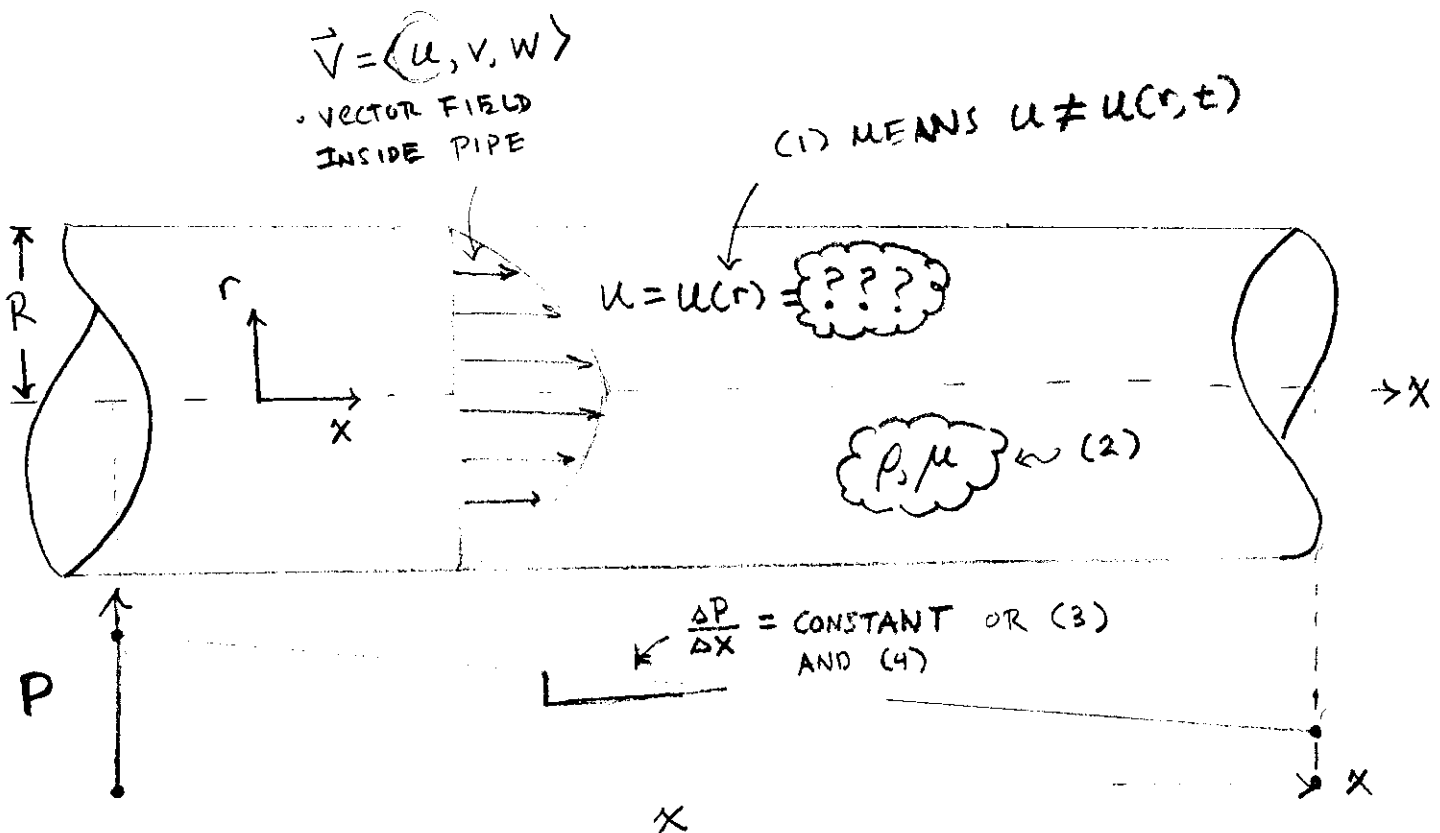 V⃗ = ⟨u, v, w⟩
· VECTOR FIELD
INSIDE PIPE
(1) MEANS u ≠ u(r,t)
R
r
x
u = u(r) = ???
→ x
ρ, μ ← (2)
ΔP/ΔX = CONSTANT OR (3)
AND (4)
P
x
x